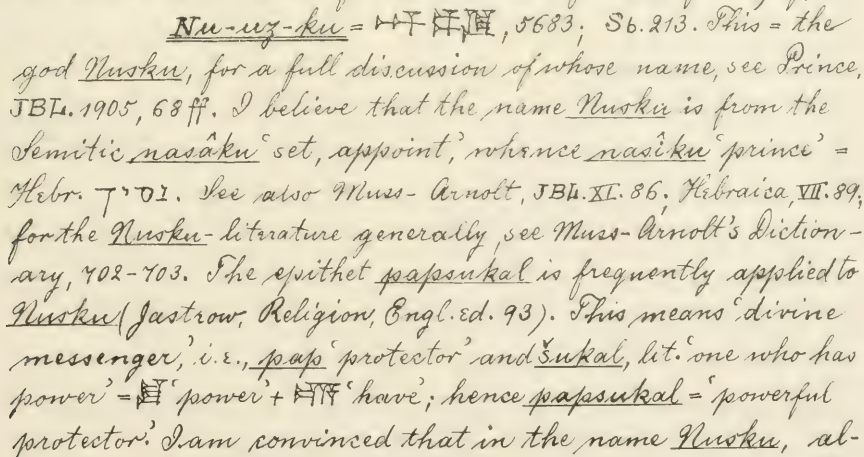 Nu-uz-ku = 𒀭𒉺𒆪, 5683; Sb. 213. This = the
god Nusku, for a full discussion of whose name, see Prince,
JBL. 1905, 68 ff. I believe that the name Nusku is from the
Semitic nasâku ‘set, appoint,’ whence nasîku ‘prince’ =
Hebr. נסיך. See also Muss-Arnolt, JBL. XI. 86; Hebraica, VII. 89;
for the Nusku-literature generally, see Muss-Arnolt's Diction-
ary, 702-703. The epithet papsukal is frequently applied to
Nusku (Jastrow, Religion, Engl. Ed. 93). This means ‘divine
messenger,’ i.e., pap ‘protector’ and šukal, lit. ‘one who has
power’ = ‘power’ + ‘have’; hence papsukal = ‘powerful
protector.’ I am convinced that in the name Nusku, al-